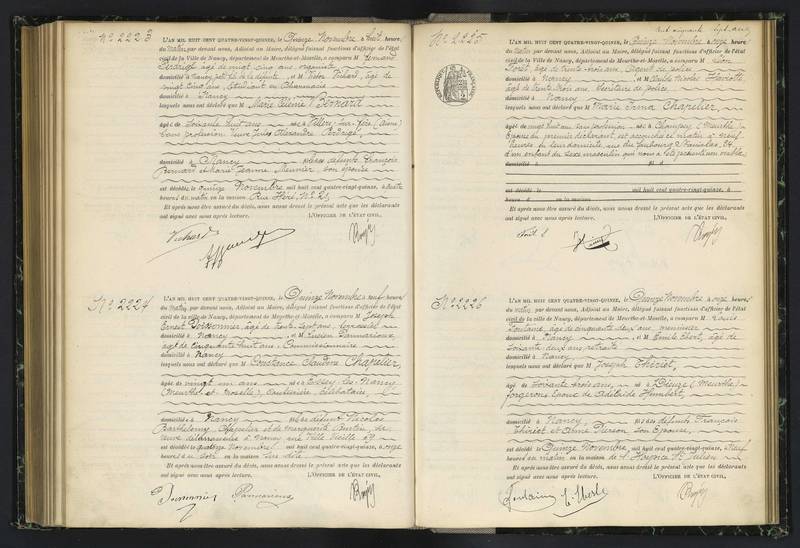 N° 2223
L'AN MIL HUIT CENT QUATRE-VINGT-QUINZE, le Quinze Novembre à huit heures
du matin par devant nous, Adjoint au Maire, délégué faisant fonctions d'officier de l'état
civil de la Ville de Nancy, département de Meurthe-et-Moselle, a comparu M Fernand
âgé de vingt cinq ans
domicilié à Nancy petit fils de la défunte et M Victor Vichard, âgé de
vingt cinq ans, étudiant en Pharmacie
domicilié à Nancy
lesquels nous ont déclaré que Marie Aimée Bernard
âgée de Soixante huit ans née à Villers sur Fère (Aisne)
sans profession Veuve Jules Alexandre
domiciliée à Nancy fille des défunts François
Bernard et Marie Jeanne Meunier, son épouse
est décédée le quinze Novembre mil huit cent quatre-vingt-quinze, à quatre
heures du matin en la maison Rue Héré, N° 21
Et après nous être assuré du décès, nous avons dressé le présent acte que les déclarants
ont signé avec nous après lecture. L'OFFICIER DE L'ÉTAT CIVIL,
Vichard
N° 2224
L'AN MIL HUIT CENT QUATRE-VINGT-QUINZE, le Quinze Novembre à neuf heures
du matin, par devant nous, Adjoint au Maire, délégué faisant fonctions d'officier de l'état
civil de la ville de Nancy, département de Meurthe-et-Moselle, a comparu M Joseph
Ernest âgé de trente sept ans,
domicilié à Nancy et M Lucien Pannarioux,
âgé de Cinquante huit ans, Commissionnaire
domicilié à Nancy
lesquels nous ont déclaré que Constance Claudine Chapelier
âgée de vingt un ans née à Essey-les-Nancy
(Meurthe et Moselle), Couturière, Célibataire,
domiciliée à Nancy fille des défunts Nicolas
Barthélemy Chapelier et de Marguerite
veuve à Nancy rue Ville Vieille 29
est décédée le quatorze Novembre mil huit cent quatre-vingt-quinze, à onze
heures du soir en la maison sus dite
Et après nous être assuré du décès, nous avons dressé le présent acte que les déclarants
ont signé avec nous après lecture. L'OFFICIER DE L'ÉTAT CIVIL,
Pannarioux
N° 2225
L'AN MIL HUIT CENT QUATRE-VINGT-QUINZE, le Quinze Novembre à onze heures
du matin par devant nous, Adjoint au Maire, délégué faisant fonctions d'officier de l'état
civil de la Ville de Nancy, département de Meurthe-et-Moselle, a comparu M Léon
âgé de trente trois ans, Agent de police
domicilié à Nancy et M Emile Nicolas
âgé de trente trois ans, Secrétaire de police,
domicilié à Nancy
lesquels nous ont déclaré que Marie Anna Chapelier
âgée de vingt huit ans sans profession née à Champey (Meurthe)
épouse du premier déclarant est accouchée ce matin à neuf
heures, en leur domicile, rue du faubourg Stanislas, 84
d'un enfant du sexe masculin qui nous a été présenté non viable
domicilié à fil d
est décédé le mil huit cent quatre-vingt-quinze, à
heures d en la maison
Et après nous être assuré du décès, nous avons dressé le présent acte que les déclarants
ont signé avec nous après lecture. L'OFFICIER DE L'ÉTAT CIVIL,
N° 2226
L'AN MIL HUIT CENT QUATRE-VINGT-QUINZE, le Quinze Novembre à onze heures
du matin, par devant nous, Adjoint au Maire, délégué faisant fonctions d'officier de l'état
civil de la ville de Nancy, département de Meurthe-et-Moselle, a comparu M Louis
Fontaine, âgé de cinquante deux ans, menuisier
domicilié à Nancy et M Emile Eberlé, âgé de
Soixante deux ans, retraité
domicilié à Nancy
lesquels nous ont déclaré que Joseph Thiriet
âgé de Soixante trois ans, né à Dieuze (Meurthe)
forgeron, époux de Adélaïde Humbert,
domicilié à Nancy fils des défunts François
Thiriet et Anne Pierson son épouse
est décédé le Quinze Novembre, mil huit cent quatre-vingt-quinze, à neuf
heures du matin en la maison de l'Hospice St Julien
Et après nous être assuré du décès, nous avons dressé le présent acte que les déclarants
ont signé avec nous après lecture. L'OFFICIER DE L'ÉTAT CIVIL,
Fontaine